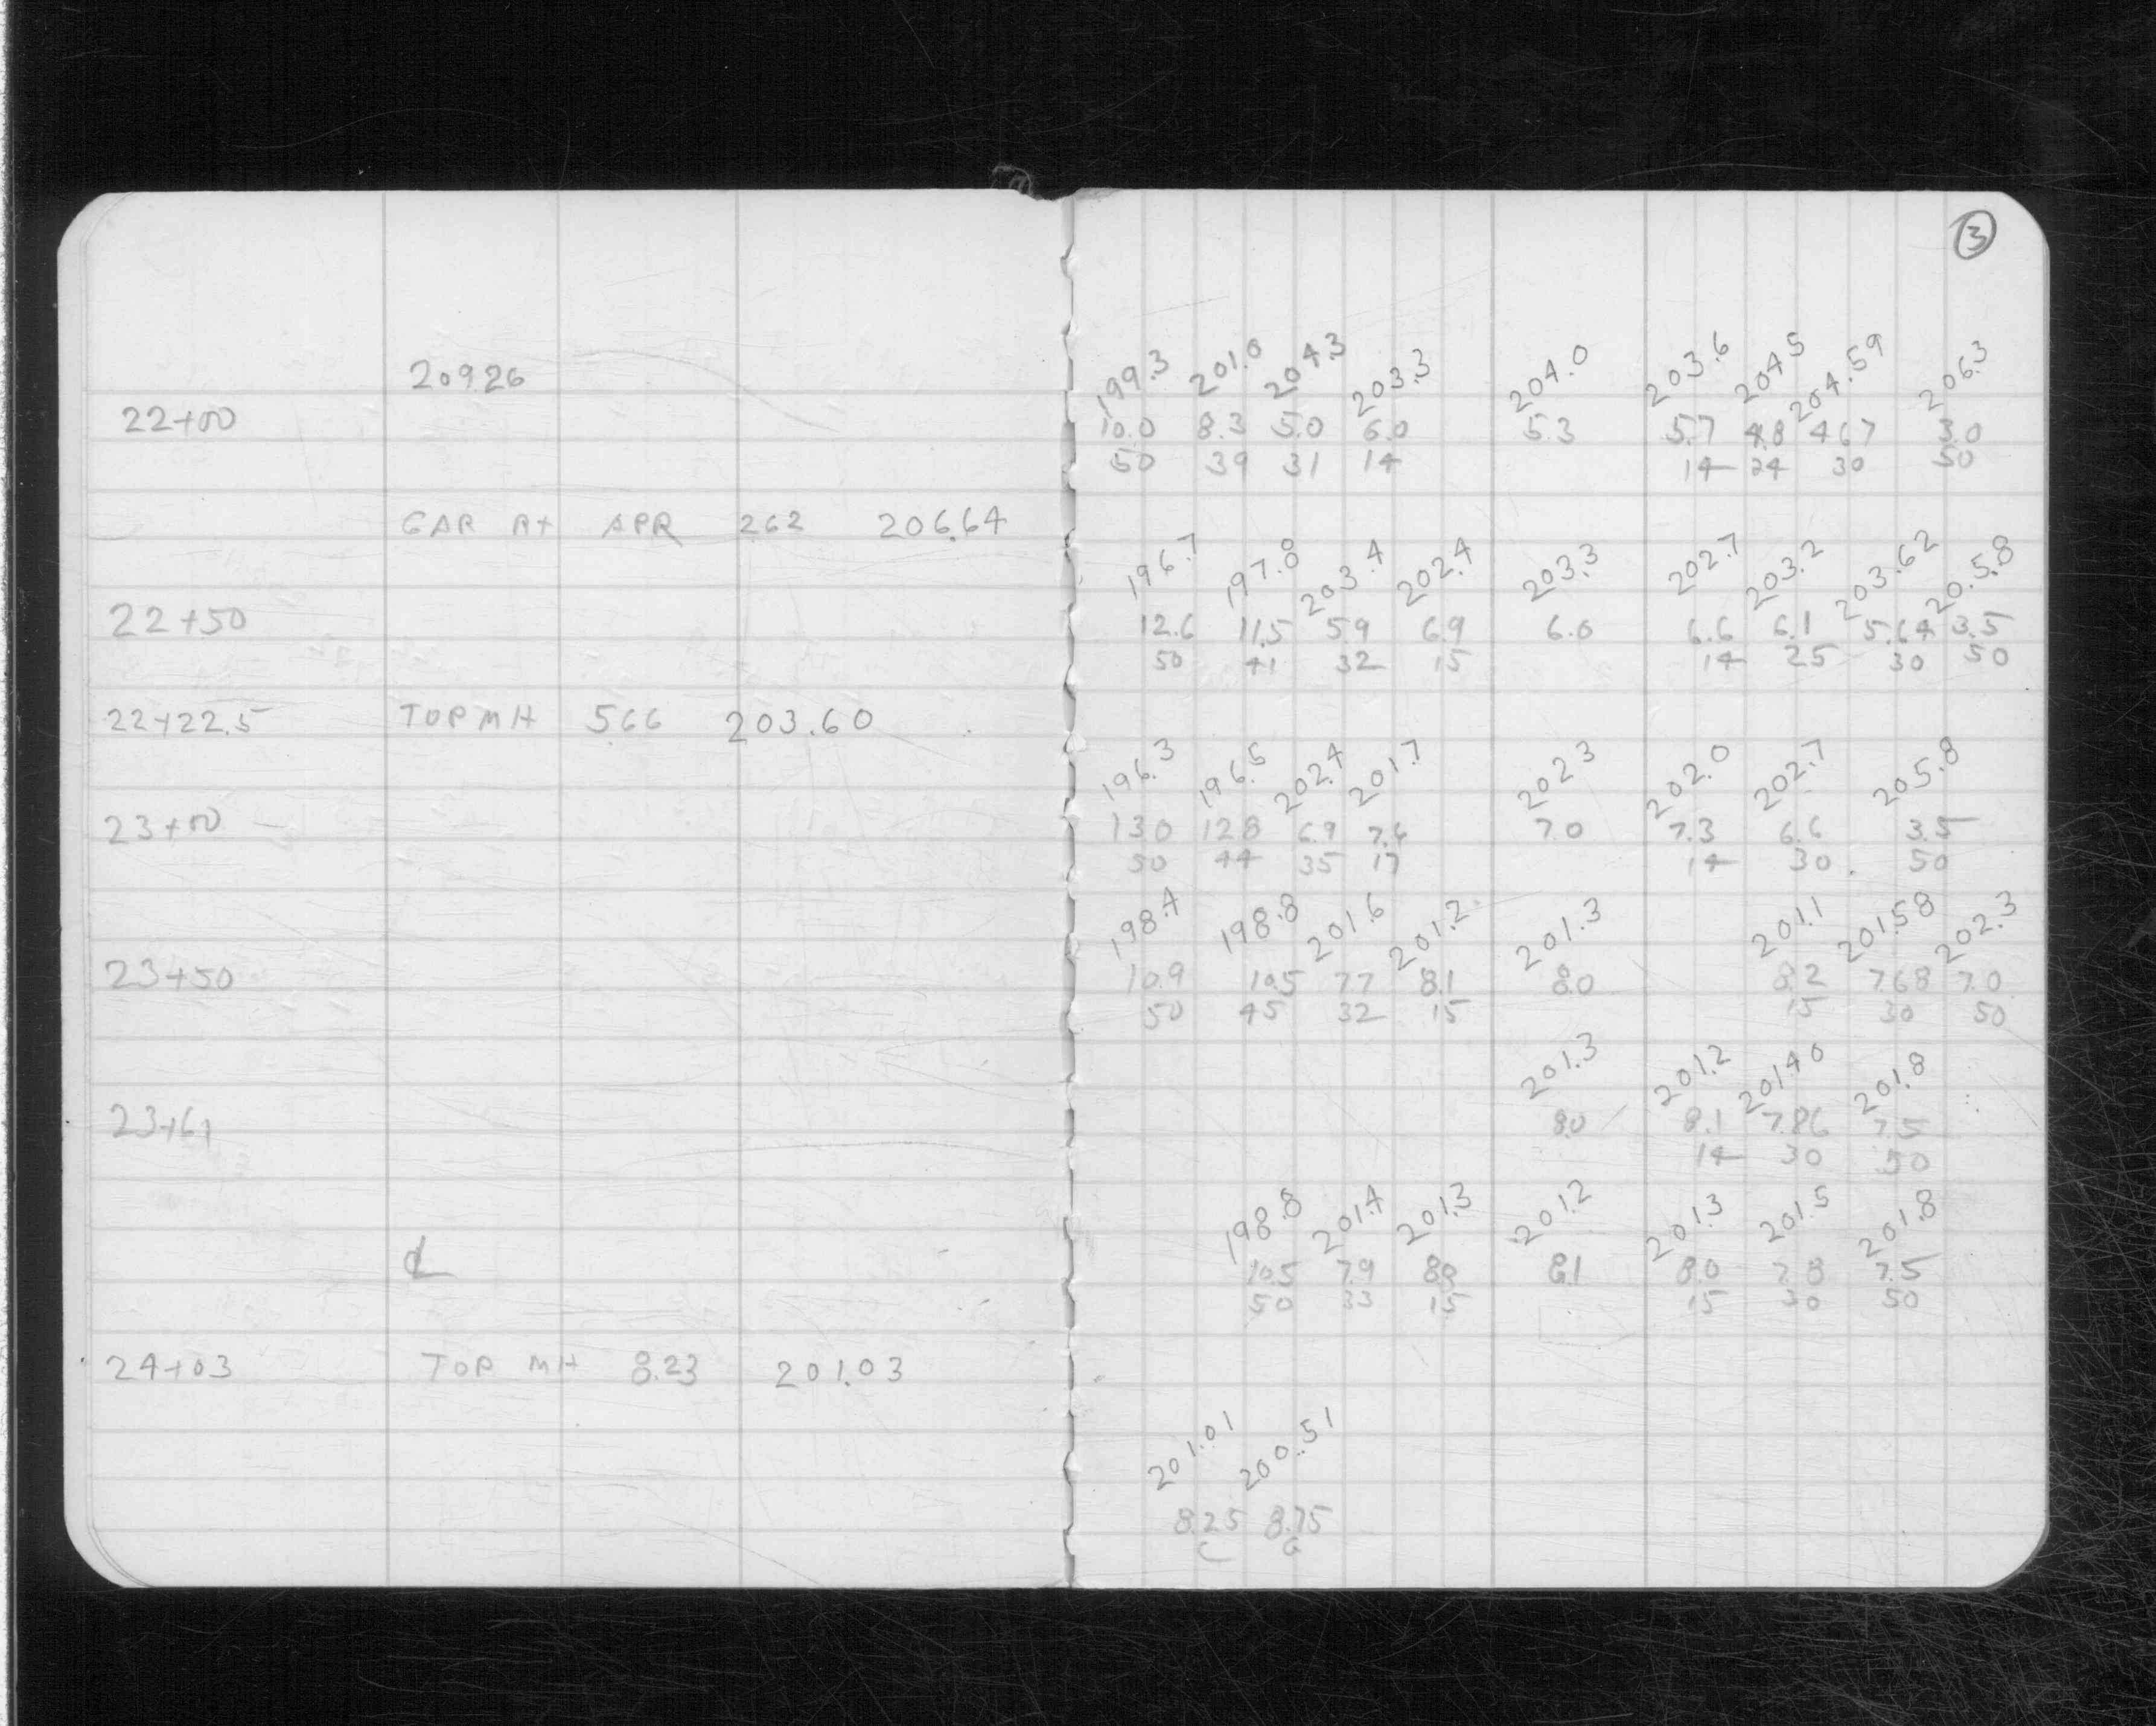 3
20926
199.3 201.0 204.3 203.3 204.0 203.6 204.5 204.59 206.3
22+00 10.0 8.3 5.0 6.0 5.3 5.7 4.8 4.67 3.0
50 39 31 14 14 24 30 50
GAR Rt APR 262 206.64
196.7 197.8 203.4 202.4 203.3 202.7 203.2 203.62 205.8
22+50 12.6 11.5 5.9 6.9 6.0 6.6 6.1 5.64 3.5
50 41 32 15 14 25 30 50
22+22.5 TOP MH 5.66 203.60
196.3 196.5 202.4 201.7 202.3 202.0 202.7 205.8
23+00 13.0 12.8 6.9 7.6 7.0 7.3 6.6 3.5
50 44 35 17 14 30 50
198.4 198.8 201.6 201.2 201.3 201.1 201.58 202.3
23+50 10.9 10.5 7.7 8.1 8.0 8.2 7.68 7.0
50 45 32 15 15 30 50
201.3 201.2 201.40 201.8
23+61 8.0 8.1 7.86 7.5
14 30 50
198.8 201.4 201.3 201.2 201.3 201.5 201.8
℄ 10.5 7.9 8.0 8.1 8.0 7.8 7.5
50 33 15 15 30 50
24+03 TOP MH 8.23 201.03
201.01 200.51
8.25 8.75
C G